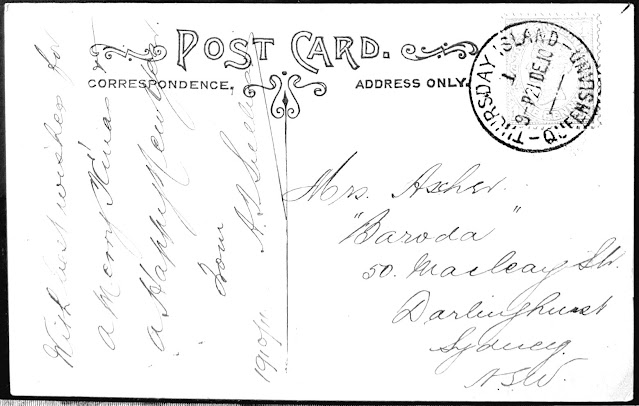 POST CARD.
CORRESPONDENCE.
ADDRESS ONLY.
THURSDAY ISLAND - QUEENSLAND
1
9-P 21 DE 10
With best wishes for
a Merry Xmas &
a Happy New Year
from
1910/11
Mrs. Ascher.
"Baroda"
50. Macleay St.
Darlinghurst
Sydney
NSW.